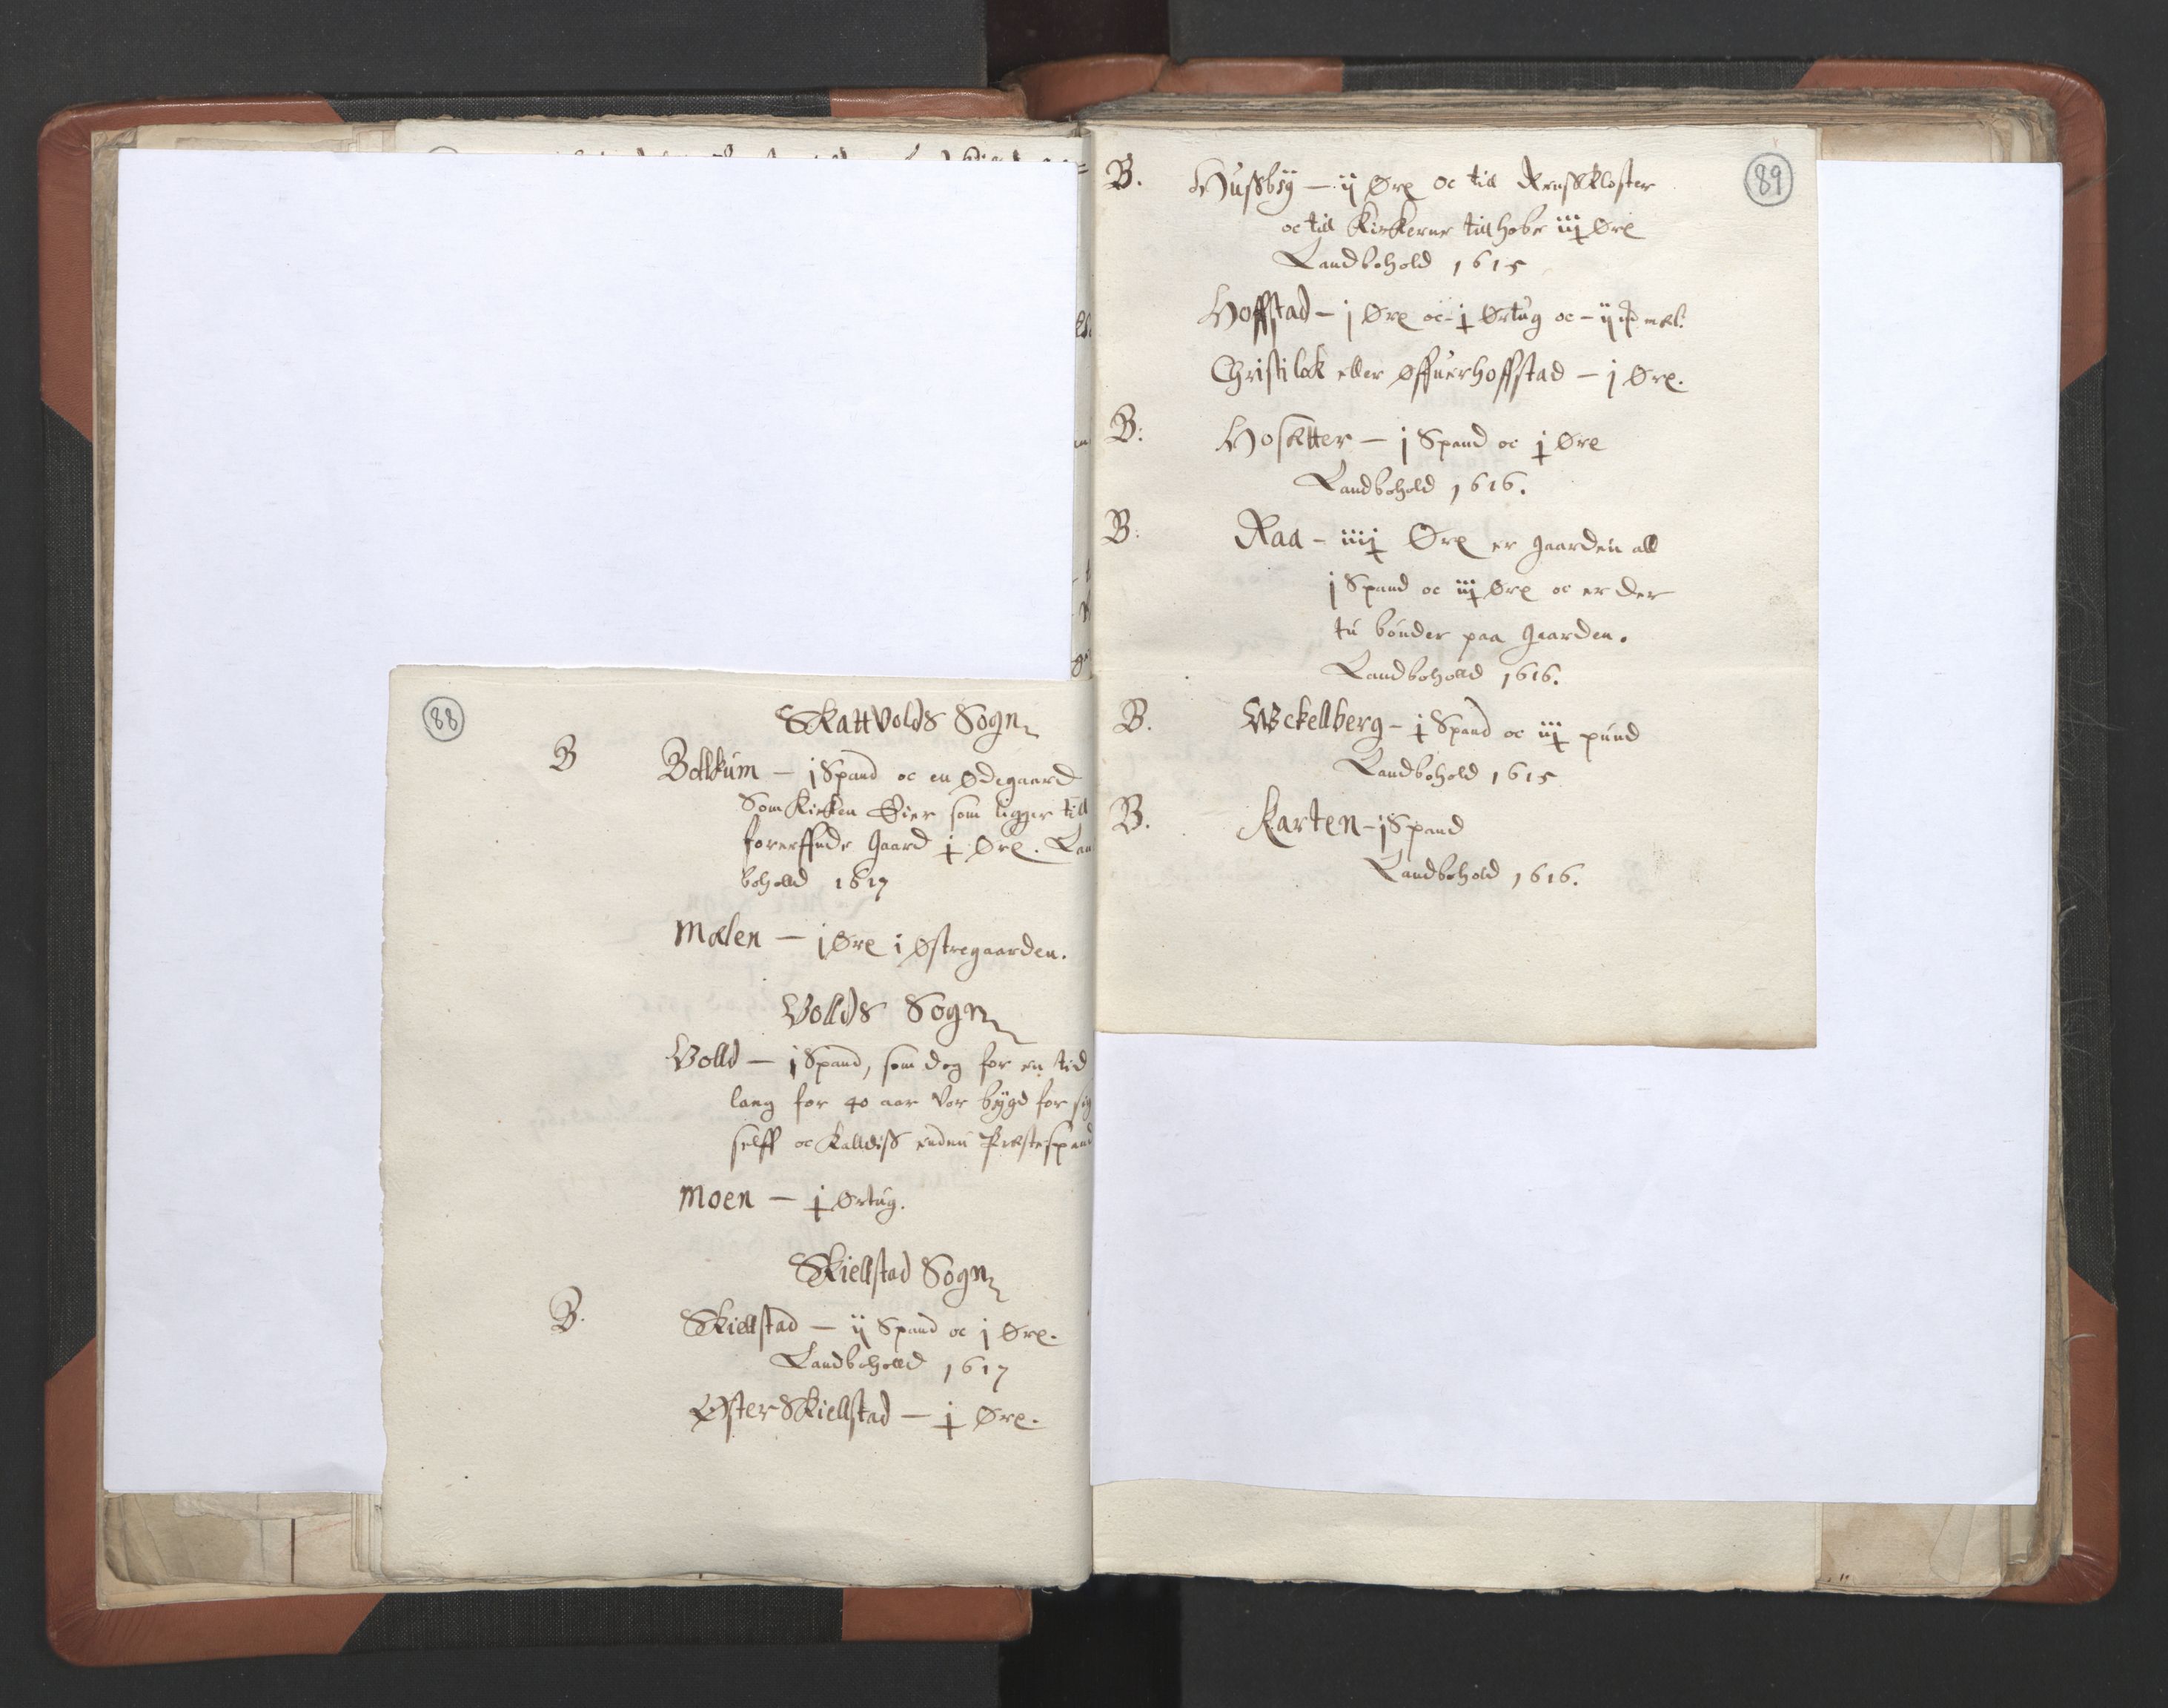 88
Skattvolds Sogn
B Bollkum — j Spand oc en Ødegaard
Som Kirken Eier som ligger till
forneffnde gaard ɉ Øre. Lan
boholld 1617
Mælen — j Øre i Østregaarden.
Vollds Sogn
Volld — j Spand, som dog for en tid
lang for 40 aar vor bygd for sig
selff oc kalldiss endnu Præstespand
Moen — ɉ Ørtug.
Skiellstad Sogn
B. Skiellstad — ij Spand oc j Øre.
Landboholld 1617
Øster Skiellstad — ɉ Øre.
89
B. Hussbÿ — ij Øre oc till Rensskloster
oc till Kirkerne tillhobe iiɉ Øre
Landbohold 1615
Hoffstad — j Øre oc ɉ Ørtug oc — ij mæl.
Christilok eller Øffuerhoffstad — j Øre.
B: Hosætter — j Spand oc ɉ Øre
Landbohold 1616.
B: Raa — iiiɉ Øre er gaarden all
j Spand oc iiɉ Øre oc er der
tu bønder paa gaarden.
Landboholld 1616.
B. Wckellberg — ɉ Spand oc iiɉ pund
Landbohold 1615
B. Karten — j Spand
Landbohold 1616.